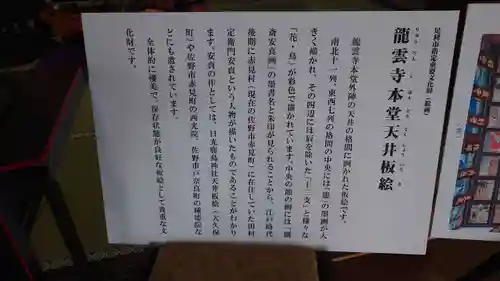 足利市指定重要文化財（絵画）
龍雲寺本堂天井板絵
りゅううんじほんどうてんじょういたえ
龍雲寺本堂外陣の天井の格間に画かれた板絵です。
南北十一列、東西七列の格間の中央には「龍」の墨画が大
きく描かれ、その四辺には辰を除いた「十二支」と様々な
「花・鳥」が彩色で描かれています。中央の龍の画には「
斎安真（画）の墨書名と朱印が見られることから、江戸時代
後期に赤見村（現在の佐野市赤見町）に在住していた田村
定衛門安真という人物が描いたものであることがわかり
ます。安真の作としては、日光鹿島神社天井板絵（大久保
町）や佐野市赤見町の西光院、佐野市戸奈良町の種徳院な
どにも遺されています。
全体的に優美で、保存状態が良好な板絵として貴重な文
化財です。